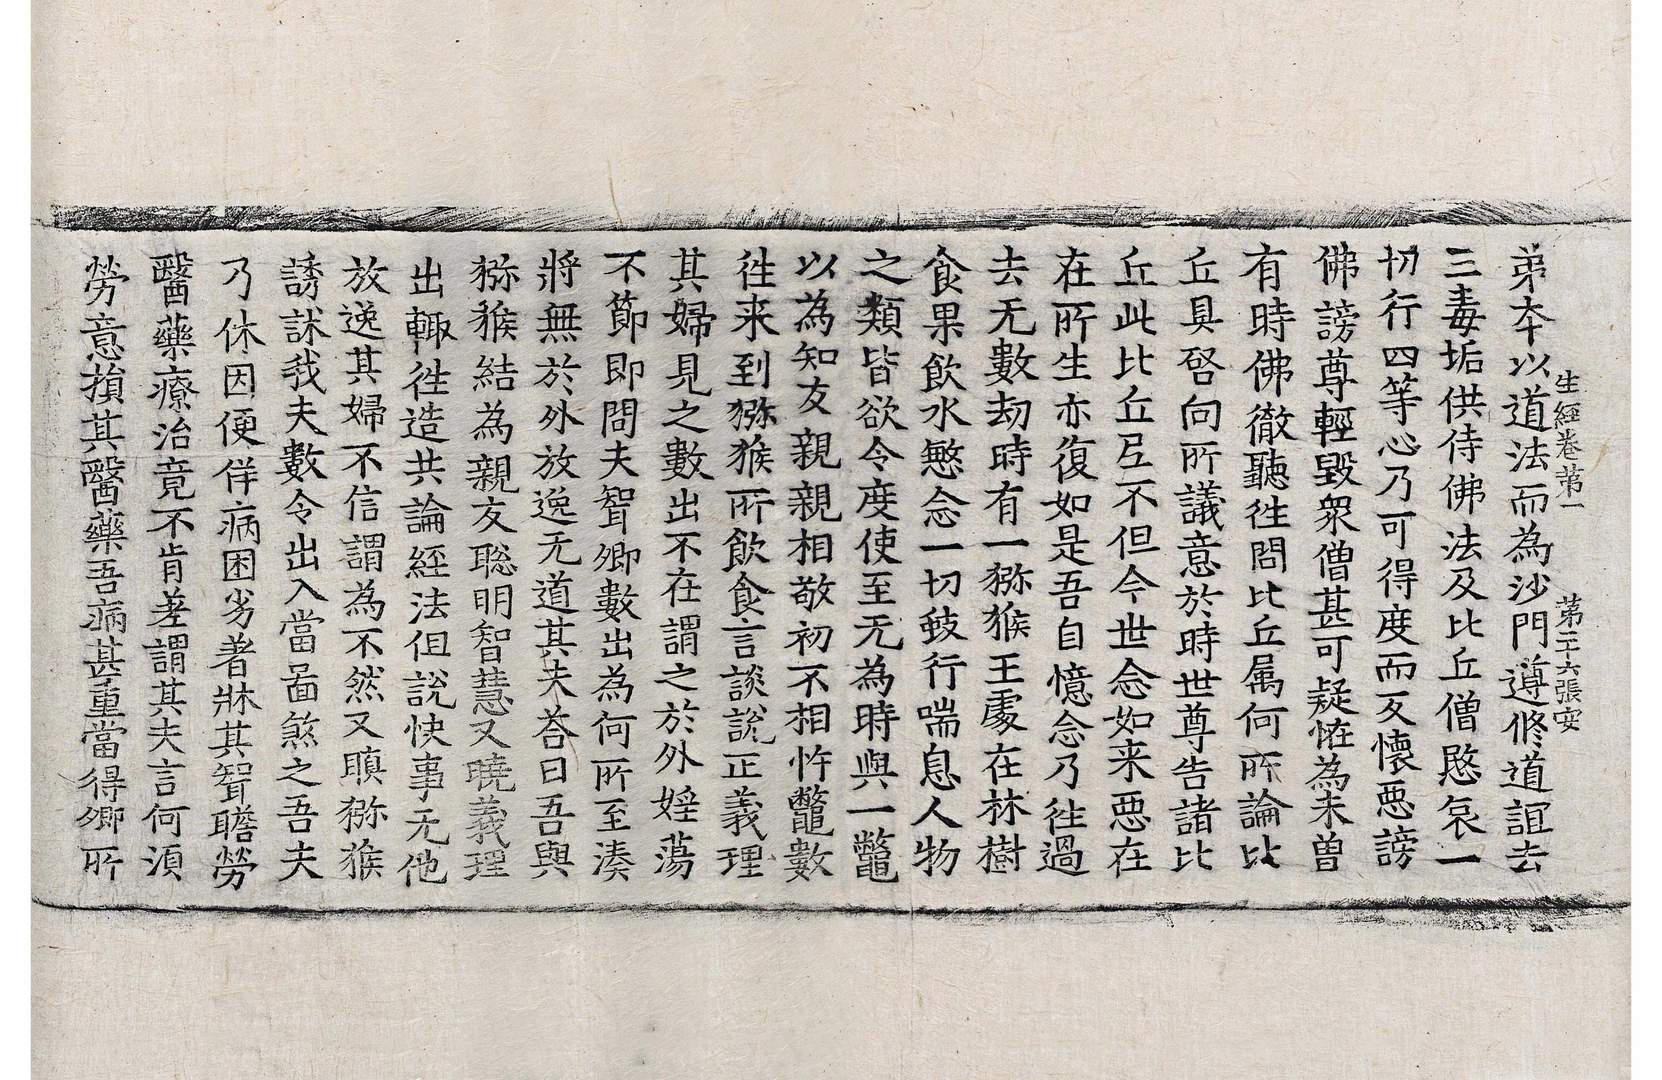 生經卷苐一　苐二十六張　安
弟本以道法而為沙門遵修道誼去
三毒垢供侍佛法及比丘僧愍哀一
切行四等心乃可得度而反懷惡謗
佛謗尊輕毀衆僧甚可疑恠為未曽
有時佛徹聽徃問比丘属何所論比
丘具啓向所議意於時世尊告諸比
丘此比丘㞐不但今世念如来惡在
在所生亦復如是吾自憶念乃徃過
去无數劫時有一猕猴王處在林樹
食果飲水愍念一切蚑行喘息人物
之類皆欲令度使至无為時與一鼈
以為知友親親相敬初不相忤鼈數
徃来到猕猴所飲食言談說正義理
其婦見之數出不在謂之於外婬蕩
不節即問夫聟卿數出為何所至湊
將無於外放逸无道其夫荅曰吾與
猕猴結為親友聡明智慧又曉義理
出輙徃造共論經法但說快事无他
放逸其婦不信謂為不然又瞋猕猴
誘訹我夫數令出入當啚煞之吾夫
乃休因便佯病困劣著牀其聟瞻勞
醫藥療治竟不肯差謂其夫言何湏
勞意損其醫藥吾病甚重當得卿所